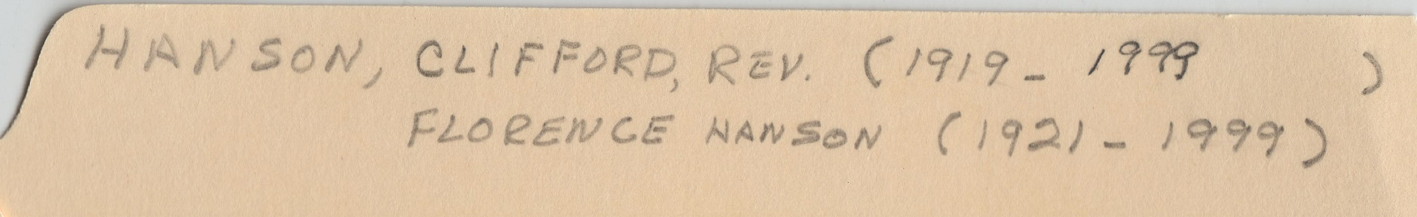 HANSON, CLIFFORD, REV. (1919 - 1999 )
FLORENCE HANSON (1921 - 1999)